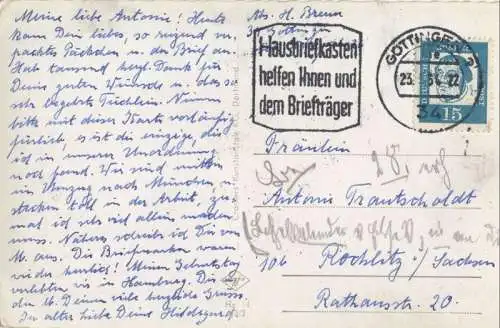 Meine liebe Antonie! Heute
kam Dein liebes, so reizend ver-
packtes Päckchen u. der Brief an.
Hab tausend herzl. Dank für
Deine guten Wünsche u. das so
sehr begehrte Tüchlein. Nimm
bitte mit dieser Karte vorläufig
fürlieb, es ist die einzige, die
ich in unserer Unordnung
noch fand. Wir sind mitten
im Umzug nach München u.
stecken toll in der Arbeit, zu-
mal ich sehr viel allein machen
muss. Näheres schreib ich Dir von
M. aus. Die Briefmarken waren
wieder herrlich! Meinen Geburtstag
verlebten wir in Hamburg. Dir
den 16. Deinen viele herzliche Grüsse
In alter Liebe Deine Hildegard
Abs. H. Breun
Göttingen
Hausbriefkasten
helfen Ihnen und
dem Briefträger
GÖTTINGEN
23.
34
15
Fräulein
Antonie Trautscholdt
106 Rochlitz i/Sachsen
Rathausstr. 20.